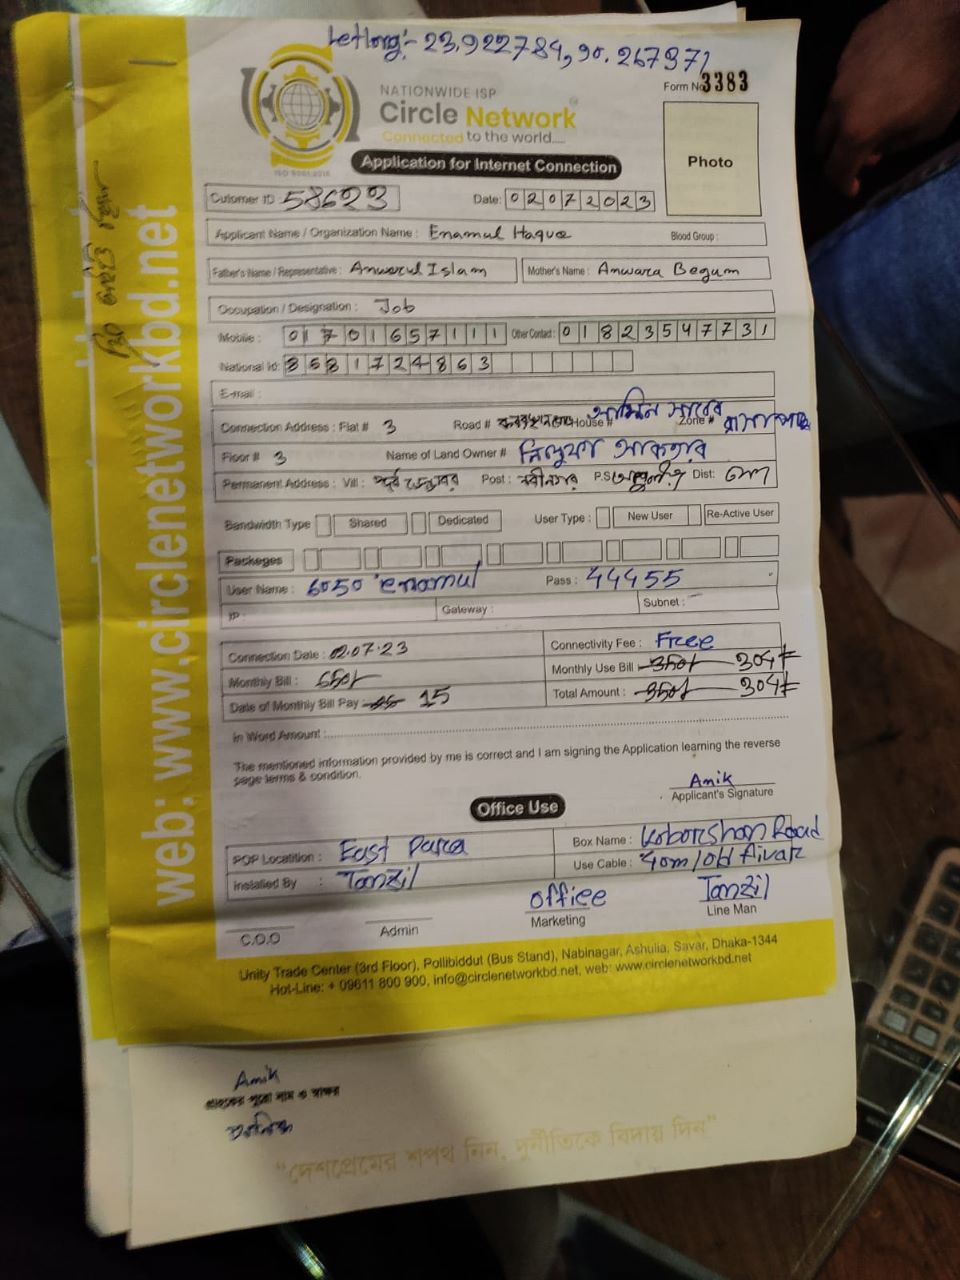 Letlong:- 23.922784, 90.267971
NATIONWIDE ISP
Circle Network
Connected to the world....
ISO 9001:2015
Form No 3383
Application for Internet Connection
Photo
Cutomer ID 58623
Date: 02072023
Applicant Name / Organization Name : Enamul Haque Blood Group :
Father's Name / Representative : Anwarul Islam Mother's Name : Anwara Begum
Occupation / Designation : Job
Mobile : 01701657111 Other Contact : 01823547731
National Id: 8681724863
E-mail :
Connection Address : Flat # 3 Road # House # Zone #
Floor # 3 Name of Land Owner #
Permanent Address : Vill : Post : নবীনগর P.S Dist:
Bandwidth Type Shared Dedicated User Type : New User Re-Active User
Packeges
User Name : 6050 enamul Pass : 44455
IP : Gateway : Subnet :
Connection Date : 02.07.23 Connectivity Fee : Free
Monthly Bill : Monthly Use Bill 304
Date of Monthly Bill Pay 15 Total Amount : 304
In Word Amount :
The mentioned information provided by me is correct and I am signing the Application learning the reverse
page terms & condition.
Amik
Applicant's Signature
Office Use
POP Locatition : East Para Box Name : Koborshan Road
Installed By : Tanzil Use Cable : 40m/old
office Tanzil
C.O.O Admin Marketing Line Man
Unity Trade Center (3rd Floor), Pollibiddut (Bus Stand), Nabinagar, Ashulia, Savar, Dhaka-1344
Hot-Line: + 09611 800 900, info@circlenetworkbd.net, web: www.circlenetworkbd.net
web: www.circlenetworkbd.net
Amik
গ্রাহকের পুরো নাম ও স্বাক্ষর
"দেশপ্রেমের শপথ নিন, দুর্নীতিকে বিদায় দিন"